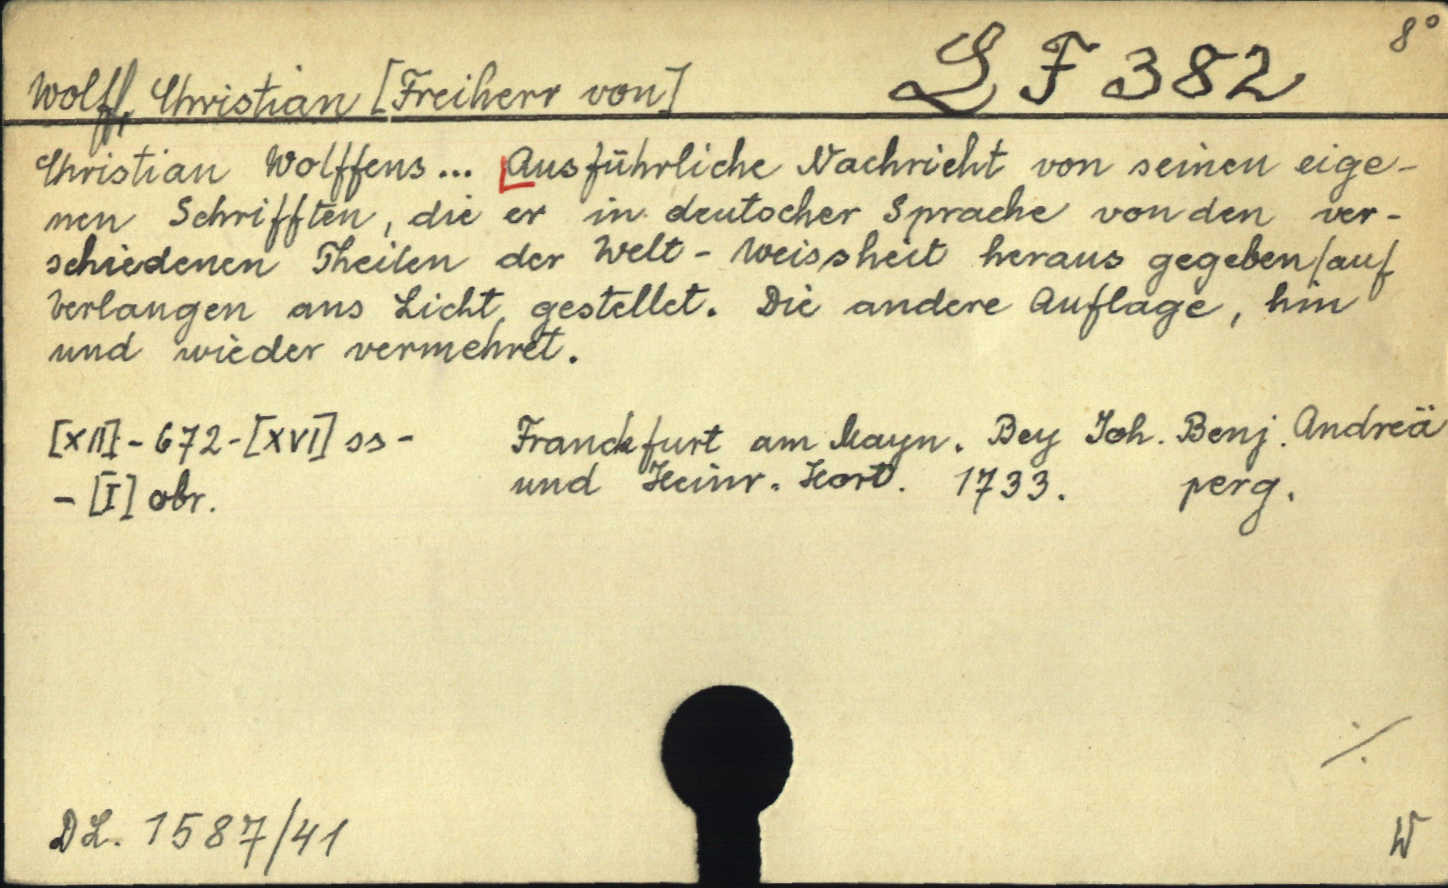 8°
Wolff, Christian [Freiherr von]
LF 382
Christian Wolffens... Ausführliche Nachricht von seinen eige-
nen Schrifften, die er in deutscher Sprache von den ver-
schiedenen Theilen der Welt-Weissheit heraus gegeben/auf
Verlangen ans Licht gestellet. Die andere Auflage, hin
und wieder vermehret.
[XII]-672-[XVI] ss-
-[I] obr.
Franckfurt am Mayn. Bey Joh. Benj. Andreä
und Heinr. Hort. 1733. perg.
./.
DL. 1587/41
W